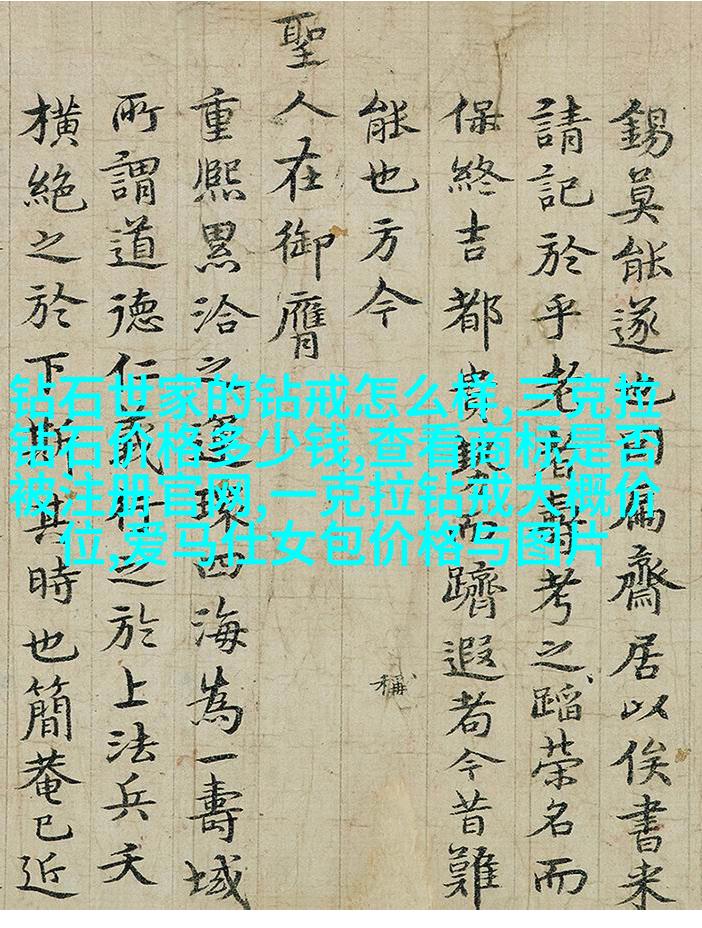 錫莫能遂也因扁齋居以俟書来
請記於乎老者壽考之蹈榮名而
保終吉都貴勢而躋遐耇今昔難
能也方今
稱
聖人在御膺
重熙累洽之運環四海為一壽域
所謂道德仁義行之於上法兵夭
橫絕之於下斯其時也簡菴已近
钻石世家的钻戒怎么样,三克拉
钻石价格多少钱,查看商标是否
被注册官网,一克拉钻戒大概价
位,爱马仕女包价格与图片